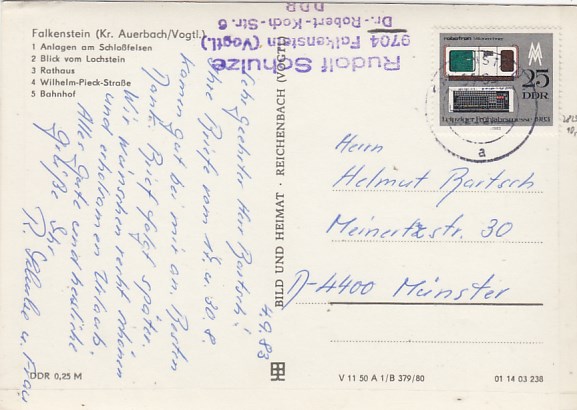 Falkenstein (Kr. Auerbach/Vogtl.)
1 Anlagen am Schloßfelsen
2 Blick vom Lochstein
3 Rathaus
4 Wilhelm-Pieck-Straße
5 Bahnhof
Rudolf Schulze
9704 Falkenstein (Vogtl.)
Dr.-Robert-Koch-Str. 6
DDR
robotron
25
DDR
Leipziger Frühjahrsmesse 1983
a
4.9.83
Sehr geehrter Herr Bartsch!
Ihre Briefe vom 12. u. 30.8.
kamen gut bei mir an. Besten
Dank. Brief folgt später.
Wir wünschen recht schönen
und erholsamen Urlaub.
Alles Gute und herzliche
Grüße Ihr
R. Schulze u. Frau
BILD UND HEIMAT · REICHENBACH (VOGTL)
Herrn
Helmut Bartsch
Meinertzstr. 30
D-4400 Münster
DDR 0,25 M
V 11 50 A 1/B 379/80
01 14 03 238